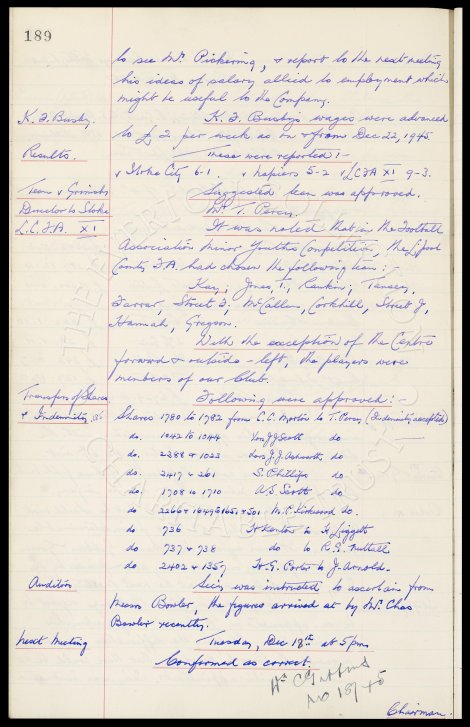 189
to see Mr. Pickering, & report to the next meeting
his ideas of salary allied to employment which
might be useful to the Company.
K. F. Busby. K. F. Busby's wages were advanced
to £2 per week as on & from Dec 22, 1945
Results. These were reported:-
v Stoke City 6-1. v Napiers 5-2 v LCFA XI 9-3.
Team v Grimsby Suggested team was approved.
Director to Stoke Mr. T. Percy.
L.C.F.A. XI It was noted that in the Football
Association Minor Youths Competition, the L'pool
County F.A. had chosen the following team:
Kay, Jones, T., Rankin, Tansey,
Farrar, Street F, McCallen, Corkhill, Street J,
Hannah, Grayson.
With the exception of the Centre
forward & outside-left, the players were
members of our Club.
Transfers of Shares Following were approved:-
& Indemnity Shares 1780 to 1782 from C.C. Morton to T. Percy (Indemnity accepted)
do. 1042 to 1044 J Scott do
do. 2388 & 1023 J.J. Ashworth do
do. 2417 & 261 S. Phillips do
do. 1708 to 1710 A.S. Scott do
do 2266 & 1649 & 1651 & 501 M.P. Kirkwood do.
do 736 H Kenton to K Liggett
do 737 & 738 do to R.G. Nuttall
do 2402 & 1357 H.G. Porter to J. Arnold.
Auditor Secy was instructed to ascertain from
Messrs Bowler, the figures arrived at by Mr. Chas
Bowler recently.
Next Meeting Tuesday, Dec 18th at 5pm
Confirmed as correct.
18/45
Chairman.
THE
CHARITABLE TRUST